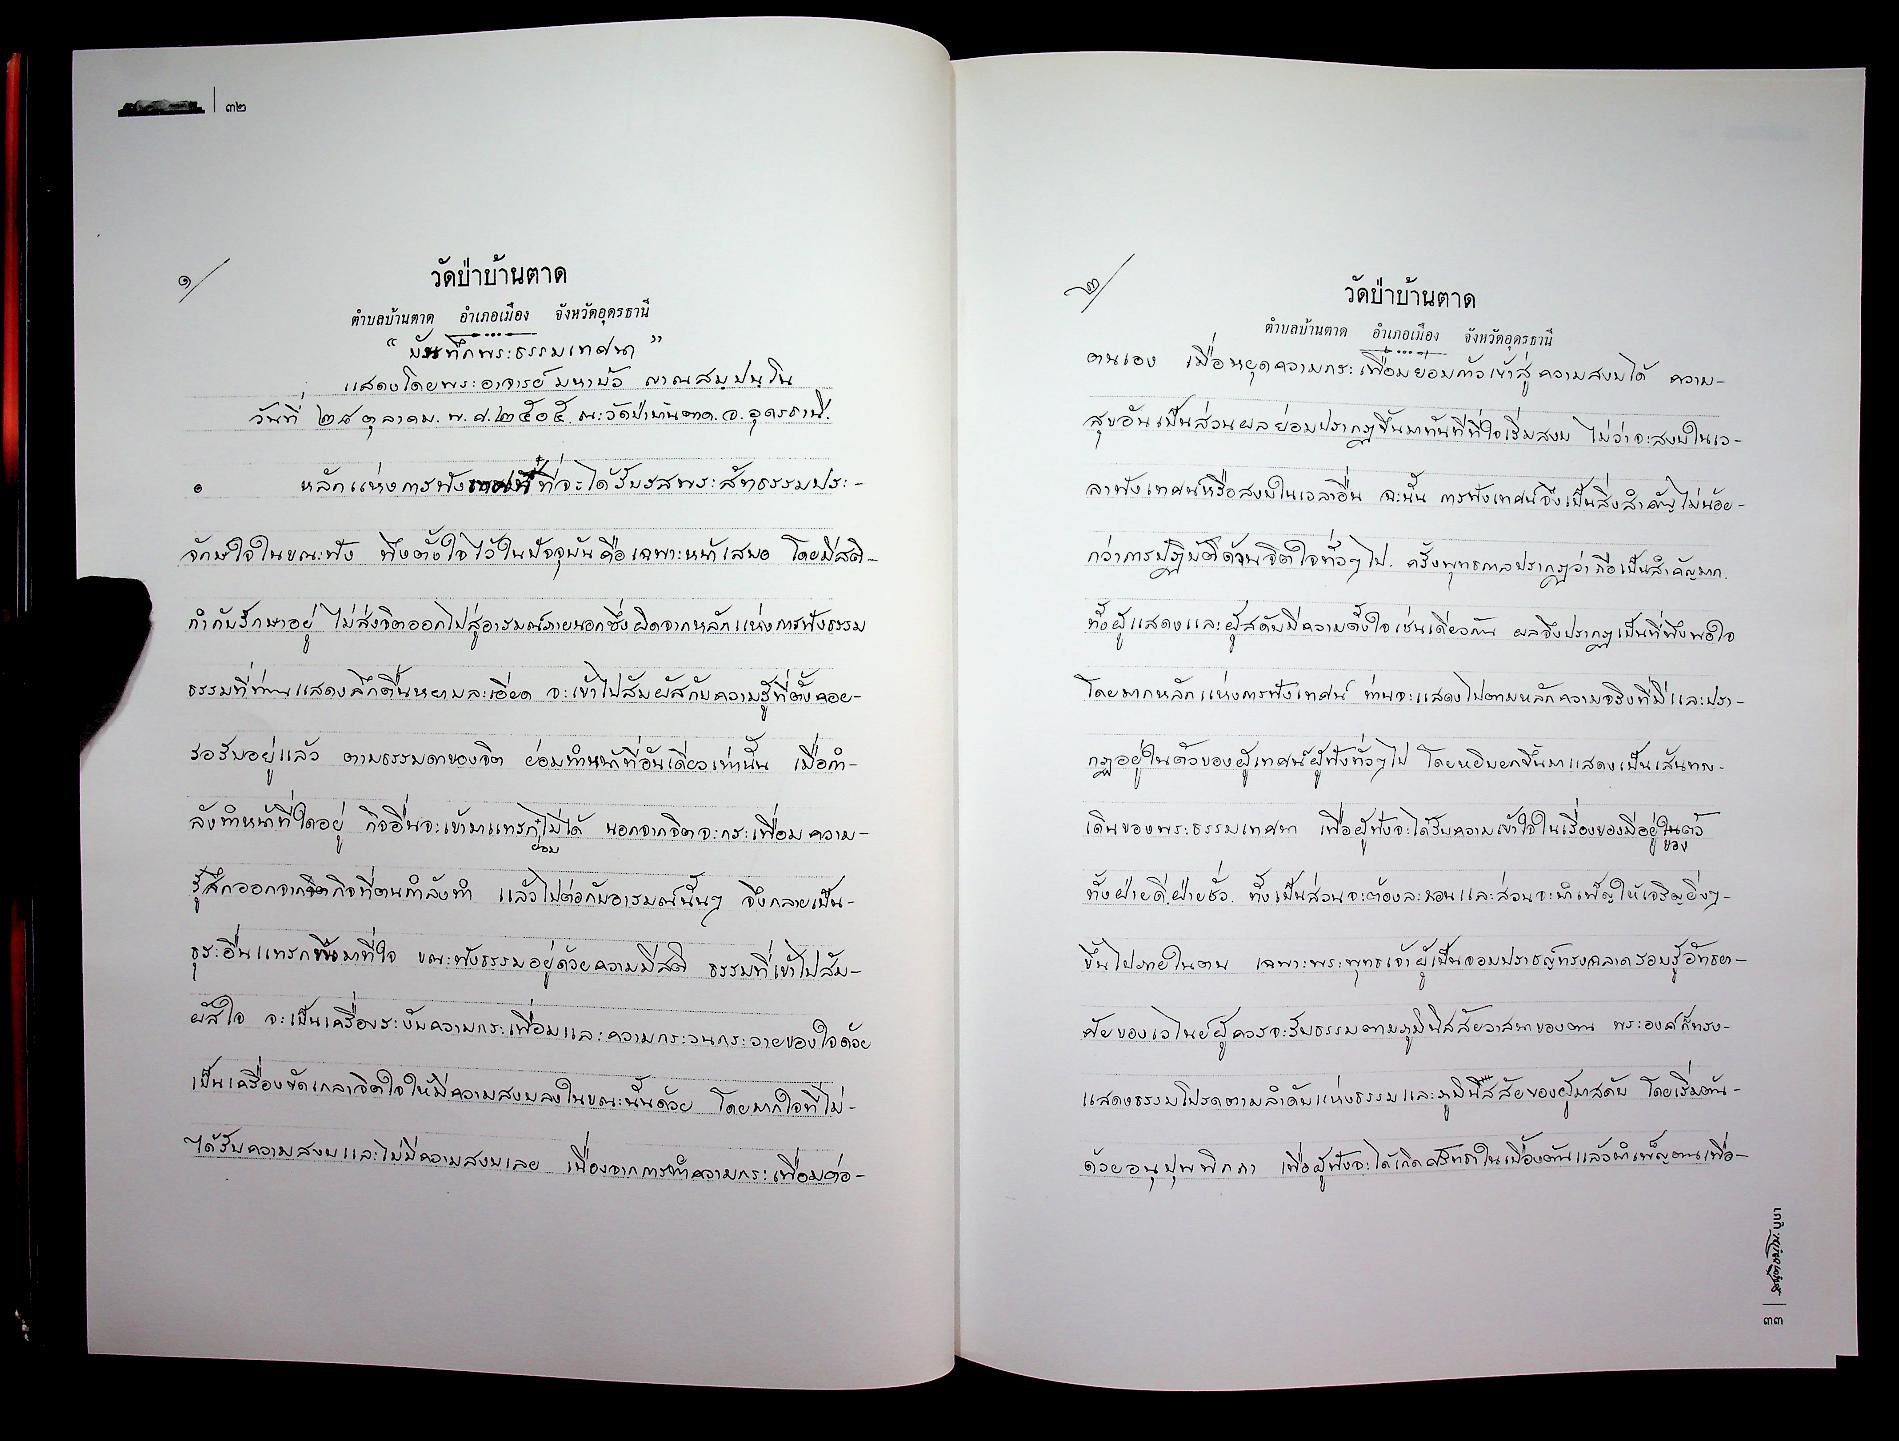 ๓๒
๑/
วัดป่าบ้านตาด
ตำบลบ้านตาด อำเภอเมือง จังหวัดอุดรธานี
“บันทึกพระธรรมเทศนา”
แสดงโดยพระอาจารย์มหาบัว ญาณสมฺปนฺโน
วันที่ ๒๘ ตุลาคม. พ.ศ.๒๕๐๕. ณะวัดป่าบ้านตาด.จ.อุดรธานี.
๑ หลักแห่งการฟังที่จะได้รับรสพระสัทธรรมประ-
จักษใจในขณะฟัง พึงตั้งใจไว้ในปัจจุบันคือเฉพาะหน้าเสมอ โดยมีสติ-
กำกับรักษาอยู่ ไม่ส่งจิตออกไปสู่อารมณ์ภายนอกซึ่งผิดจากหลักแห่งการฟังธรรม
ธรรมที่ท่านแสดงลึกตื้นหยาบละเอียด จะเข้าไปสัมผัสกับความรู้ที่ตั้งคอย-
รอรับอยู่แล้ว ตามธรรมดาของจิต ย่อมทำหน้าที่อันเดียวเท่านั้น เมื่อกำ-
ลังทำหน้าที่ใดอยู่ กิจอื่นจะเข้ามาแทรกย่อมไม่ได้ นอกจากจิตจะกระเพื่อมความ-
รู้สึกออกจากกิจที่ตนกำลังทำ แล้วไปต่อกับอารมณ์นั้นๆ จึงกลายเป็น-
ธุระอื่นแทรกขึ้นมาที่ใจ ขณะฟังธรรมอยู่ด้วยความมีสติ ธรรมที่เข้าไปสัม-
ผัสใจ จะเป็นเครื่องระงับความกระเพื่อมและความกระวนกระวายของใจด้วย
เป็นเครื่องขัดเกลาจิตใจให้มีความสงบลงในขณะนั้นด้วย โดยมากใจที่ไม่-
ได้รับความสงบและไม่มีความสงบเลย เนื่องจากการทำความกระเพื่อมต่อ-
๒/
วัดป่าบ้านตาด
ตำบลบ้านตาด อำเภอเมือง จังหวัดอุดรธานี
ตนเอง เมื่อหยุดความกระเพื่อมย่อมก้าวเข้าสู่ความสงบได้ ความ-
สุขอันเป็นส่วนผลย่อมปรากฏขึ้นมาทันทีที่ใจเริ่มสงบ ไม่ว่าจะสงบในเว-
ลาฟังเทศน์หรือสงบในเวลาอื่น ฉะนั้น การฟังเทศน์จึงเป็นสิ่งสำคัญไม่น้อย-
กว่าการปฏิบัติด้านจิตใจทั่วๆไป. ครั้งพุทธกาลปรากฏว่าถือเป็นสำคัญมาก.
ทั้งผู้แสดงและผู้สดับมีความตั้งใจเช่นเดียวกัน ผลจึงปรากฏเป็นที่พึงพอใจ
โดยมากหลักแห่งการฟังเทศน์ ท่านจะแสดงไปตามหลักความจริงที่มีและปรา-
กฏอยู่ในตัวของผู้เทศน์ผู้ฟังทั่วๆไป โดยหยิบยกขึ้นมาแสดงเป็นเส้นทาง-
เดินของพระธรรมเทศนา เพื่อผู้ฟังจะได้รับความเข้าใจในเรื่องของมีอยู่ในตัวของ
ทั้งฝ่ายดี.ฝ่ายชั่ว. ทั้งเป็นส่วนจะต้องละถอนและส่วนจะบำเพ็ญให้เจริญยิ่งๆ-
ขึ้นไปภายในตน เฉพาะพระพุทธเจ้าผู้เป็นจอมปราชญ์ทรงฉลาดรอบรู้อัทธยา-
ศัยของเวไนย์ผู้ควรจะรับธรรมตามภูมินิสสัยวาสนาของตน พระองค์ก็ทรง-
แสดงธรรมโปรดตามลำดับแห่งธรรมและภูมินิสสัยของผู้มาสดับ โดยเริ่มต้น-
ด้วยอนุปุพพิกถา เพื่อผู้ฟังจะได้เกิดศรัทธาในเบื้องต้นแล้วบำเพ็ญตนเพื่อ-
บูชา
๓๓